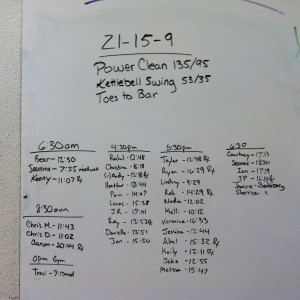 21-15-9
Power Clean 135/95
Kettlebell Swing 53/35
Toes to Bar
6:30am
Bear - 12:50
Jeannina - 7:35
Kenny - 11:07 Rx
8:30am
Chris M. - 11:43
Chris D. - 11:02
Aaron - 20:44 Rx
Open Gym
Traci -
4:30pm
Rahul - 12:48
Christine - 8:18
Andy - Rx
Heather - 13:44
Pam - 14:07
Lucas - 15:38
J.R. - 17:01
Ray - 12:56 Rx
Danielle - 12:51
Jan - 15:50
5:30pm
Taylor - 12:38 Rx
Ryan - 16:29 Rx
Lindsey - 9:29
Rob - 14:29 Rx
Nadia - 12:02
Kelli - 10:12
Veronica - 16:33
Jessica - 12:44
Abel - 15:32 Rx
Kaily - 12:11 Rx
Jake - 12:55
Melissa - 15:47
6:30
Courtney - 17:13
Jeannie - 12:30
Ian - 17:19
JP -